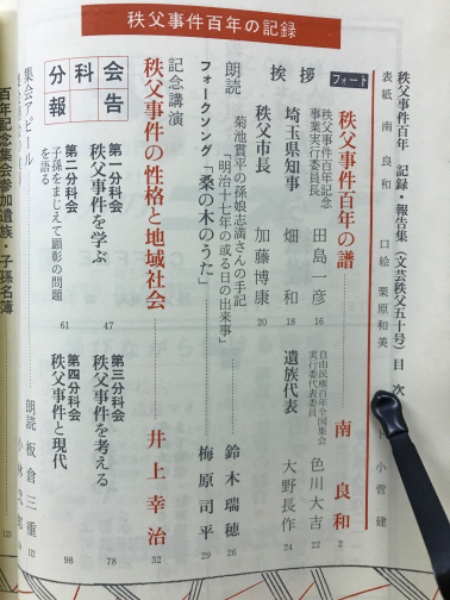 秩父事件百年の記録
秩父事件百年 記録・報告集（文芸秩父五十号）目次
表紙 南良和 口絵 栗原和美 ト 小菅健
フォード
秩父事件百年の譜 南良和 2
挨拶
秩父事件百年記念
事業実行委員長 田島一彦 16
自由民権百年全国集会
実行委代表委員 色川大吉 22
埼玉県知事 畑和 18
遺族代表 大野長作 24
秩父市長 加藤博康 20
朗読 菊池貫平の孫娘志満さんの手記
「明治十七年の或る日の出来事」 鈴木瑞穂 26
フォークソング「桑の木のうた」 梅原司平 29
記念講演
秩父事件の性格と地域社会 井上幸治 32
分科会報告
第一分科会
秩父事件を学ぶ 47
第三分科会
秩父事件を考える 78
第二分科会
子孫をまじえて顕彰の問題
を語る 61
第四分科会
秩父事件と現代 98
集会アピール 朗読 板倉三重
小林
百年記念集会参加遺族・子孫名簿